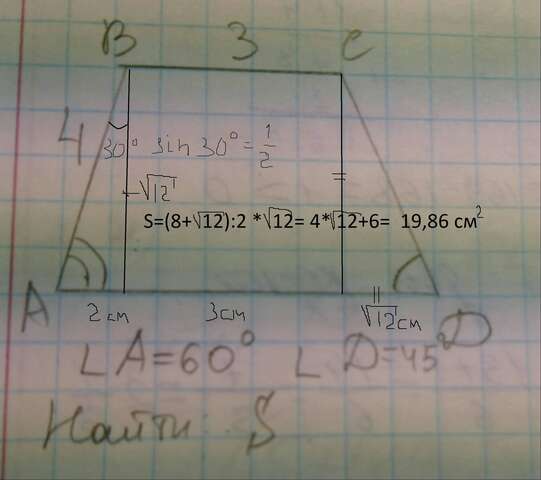 B 3 C
4
30° sin 30° = 1/2
√12
S=(8+√12):2 *√12= 4*√12+6= 19,86 см²
A 2 см 3см √12 см D
∠A=60° ∠D=45°
Найти S